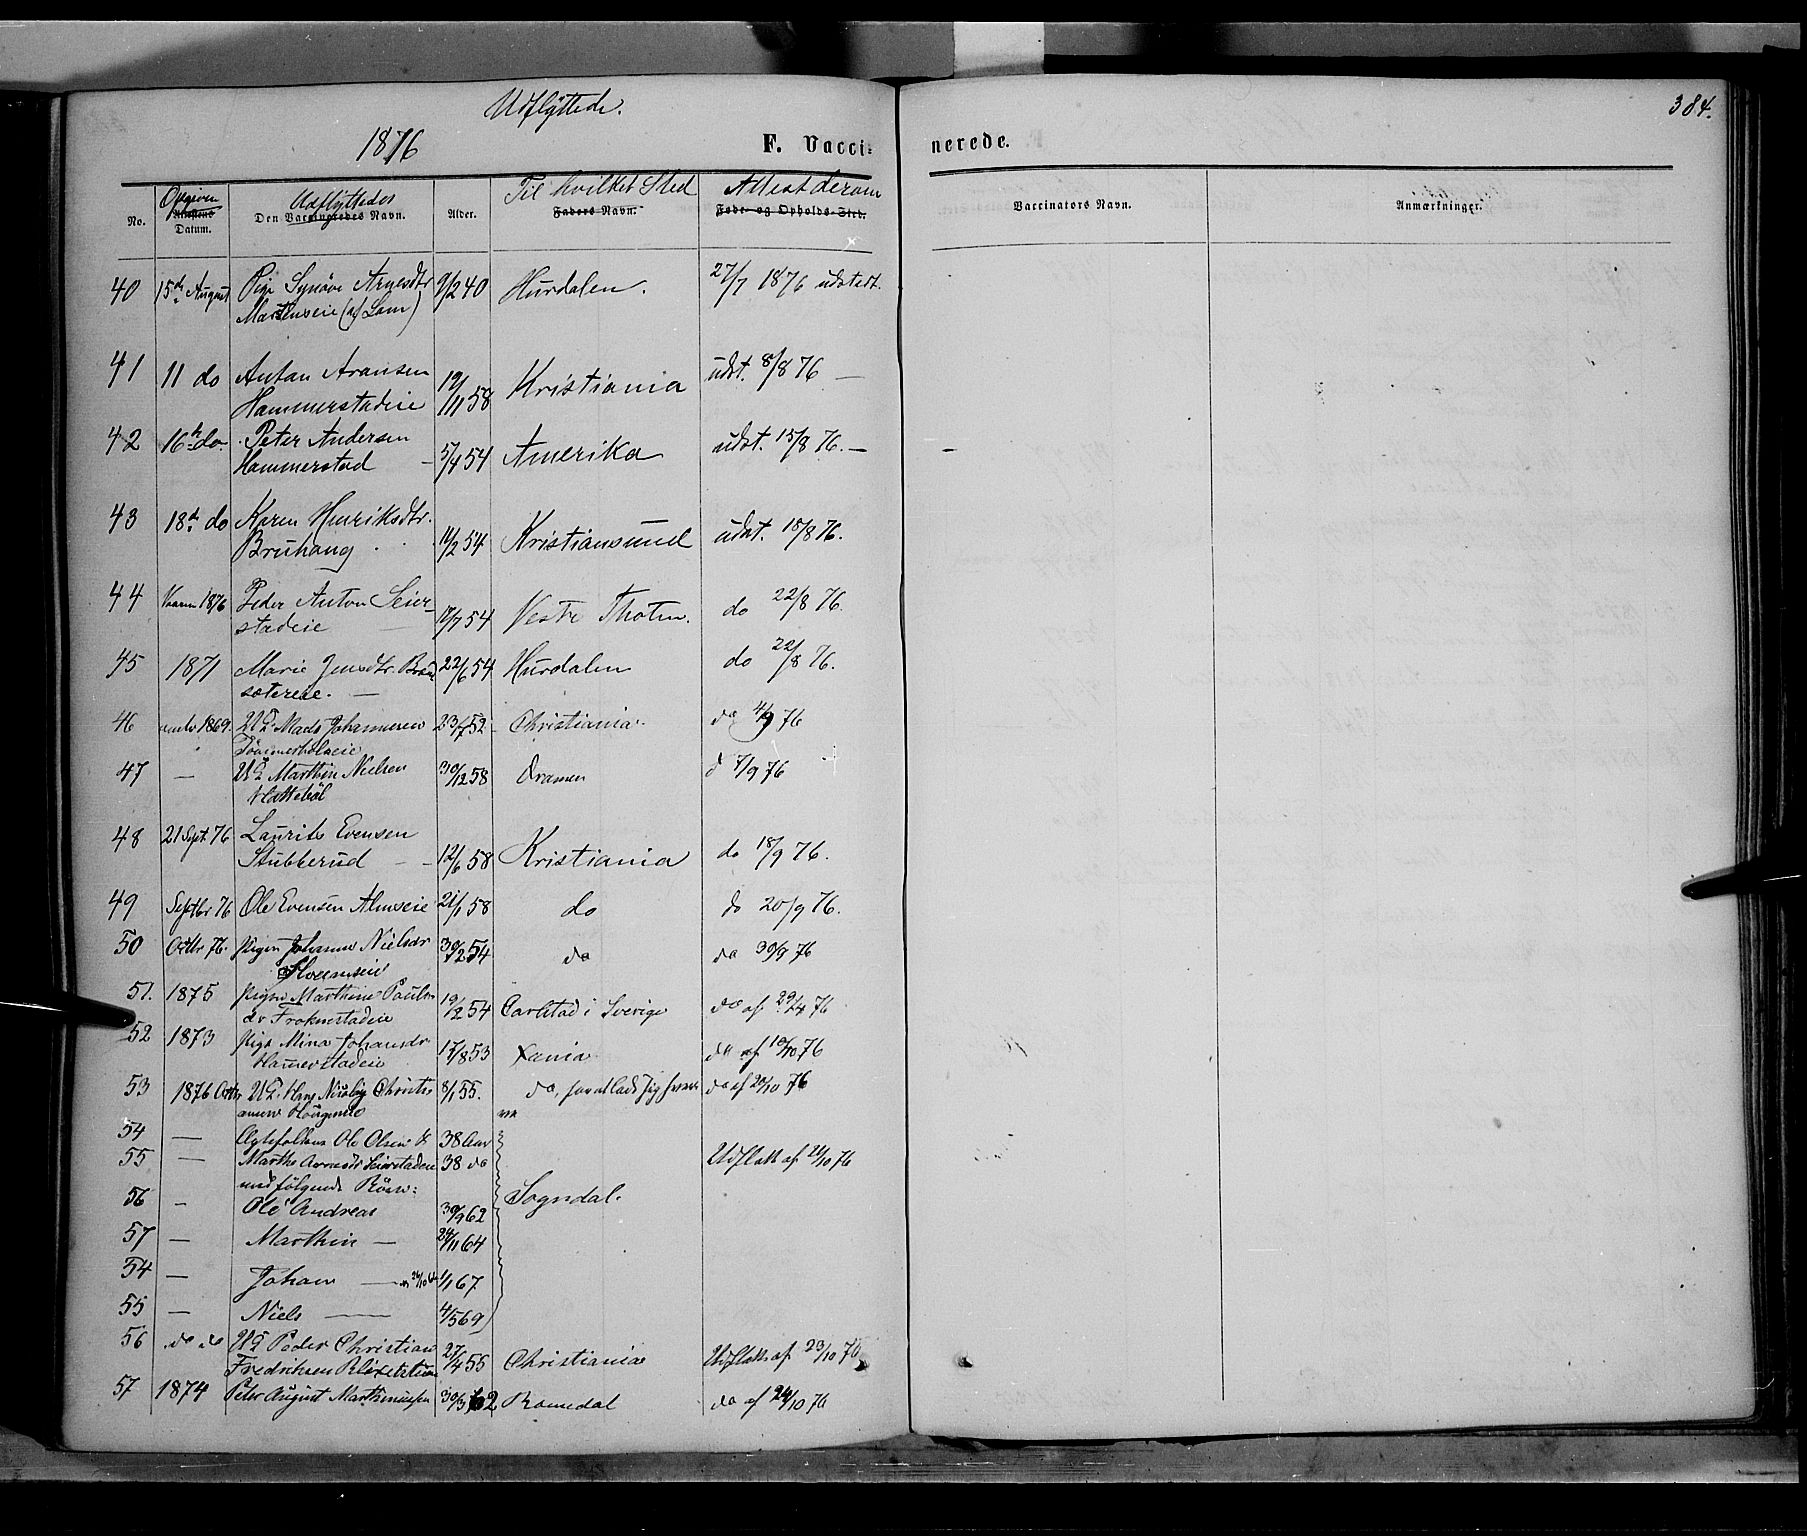 384.
Udflyttede.
1876
F. Vacci-
nerede.
No.
Opgiven
Attestens
Datum.
Udflyttedes
Den Vaccineredes Navn.
Alder.
Til hvilket Sted
Faders Navn.
Attest derom
Føde- og Opholds-Sted.
Vaccinators Navn.
Anmærkninger.
40 15de August Pige Synøve Arnesdtr 9/2 40 Hurdalen. 27/7 1876 udstedt.
(af Lom)
41 11 do Anton Aronsen 19/11 58 Kristiania udst. 8/8 76 —
Hammerstadeie
42 16de do. Peter Andersen 5/4 54 Amerika udst. 15/8 76. —
Hammerstad
43 18de do Karen Henriksdtr. 11/2 54 Kristiansund udst. 18/8 76.
Bruhaug
44 1876 Peder Anton Seier- 54 Vestre Thoten. do 22/8 76.
stadeie
45 1871 Marie Jensdtr. 22/6 54 Hurdalen do 22/8 76.
sætereie. —
46 1869. UG Mads Johannesen 23/7 52 Christiania. do 4/9 76
47 — UG Marthin Nielsen 30/12 58 Dramen d 7/9 76
48 21 Sept. 76 Laurits Evensen 12/6 58 Kristiania do 18/9 76.
Stubberud
49 Septbr 76 Ole Evensen Almseie 21/1 58 do do 20/9 76.
50 Octbr 76. Pigen Johanne Nielsdr 54 do do 30/9 76
51. 1875 Pigen Marthine Pauls- 19/2 54 Carlstad i Sverige do af 29/4 76
dr
52 1873 Pige Mina Johansdr 17/8 53 Xania do af 10/10 76
Hamerstadeie
53 1876 Octbr UG. Hans Christi- 8/1 55. do, do af 20/10 76
54 — Ægtefolkene Ole Olsen & 38 Aar
55 — Marthe Arnesdr Seierstadeie 38 do Udflatt af 21/10 76
med følgende Børn:
56 — Ole Andreas 30/9 62 Sogndal.
57 — Marthin — 24/11 64
54 — Johan — 1/1 67
55 — Niels — 4/5 69
56 do do UG Peder Christian 27/4 55 Christiania Udflatt af 23/10 76
Fredriksen
57 1874 Peter August Marthiniussen 30/3 62 Romedal do af 24/10 76